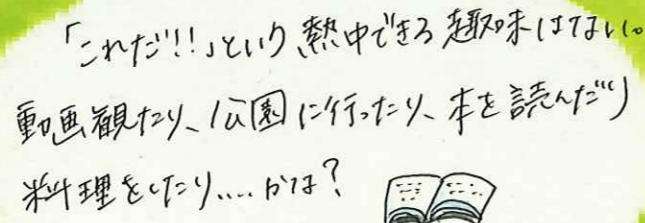 「これだ!!」という、熱中できる趣味はない。
動画観たり、公園に行ったり、本を読んだり
料理をしたり....かな?